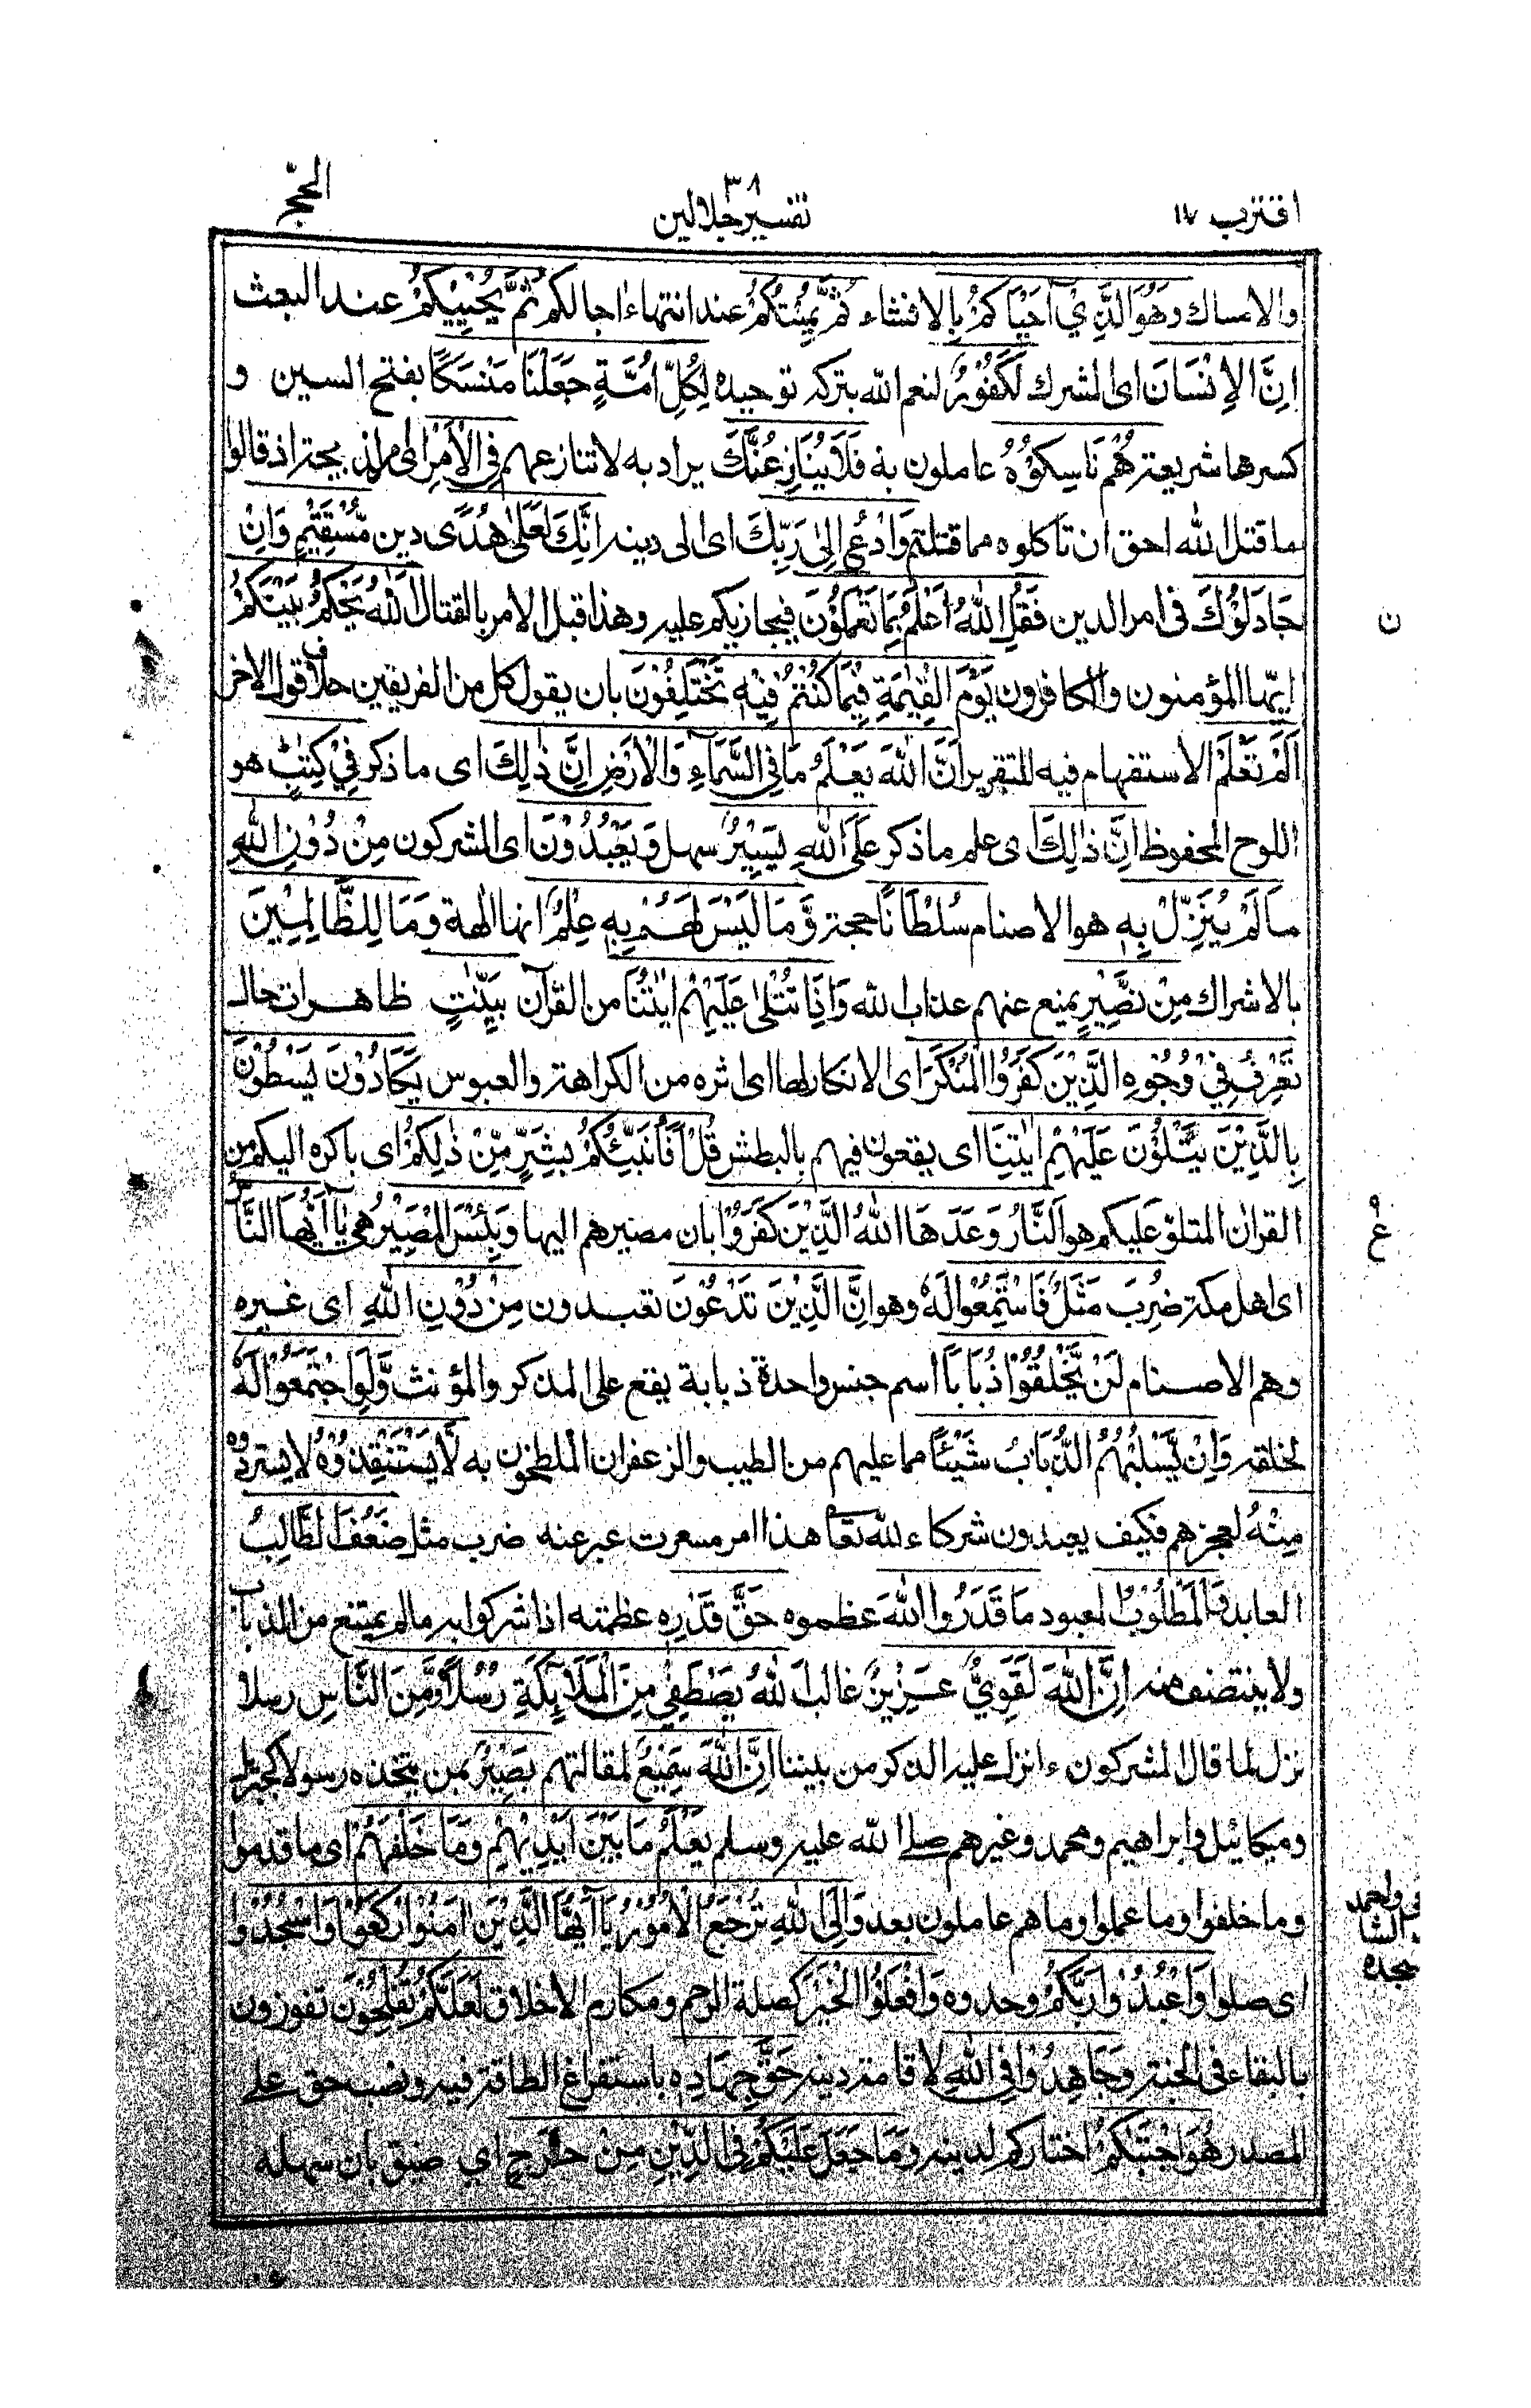 اقترب ١٧
٣٨
تفسير جلالين
الحجّ
والامساك وَهُوَ الَّذِيْ اَحْيَاكُمْ بِالانشاء ثُمَّ يُمِيْتُكُمْ عند انتهاء اجالكم ثُمَّ يُحْيِيْكُمْ عند البعث
اِنَّ الْاِنْسَانَ اى المشرك لَكَفُوْرٌ لنعم الله بتركه توحيده لِكُلِّ اُمَّةٍ جَعَلْنَا مَنْسَكًا بفتح السين و
كسرها شريعة هُمْ نَاسِكُوْهُ عاملون به فَلَا يُنَازِعُنَّكَ يراد به لا تنازعهم فِى الْاَمْرِ اى امر الذبيحة اذ قالوا
ما قتل الله احق ان تأكلوه مما قتلتم وَادْعُ اِلٰى رَبِّكَ اى الى دينه اِنَّكَ لَعَلٰى هُدًى دين مُّسْتَقِيْمٍ وَاِنْ
جَادَلُوْكَ فى امر الدين فَقُلِ اللهُ اَعْلَمُ بِمَا تَعْمَلُوْنَ فيجازيكم عليه وهذا قبل الامر بالقتال اَللهُ يَحْكُمُ بَيْنَكُمْ
ن
ايها المؤمنون والكافرون يَوْمَ الْقِيٰمَةِ فِيْمَا كُنْتُمْ فِيْهِ تَخْتَلِفُوْنَ بان يقول كل من الفريقين خلاف قول الاخر
اَلَمْ تَعْلَمْ الاستفهام فيه للتقرير اَنَّ اللهَ يَعْلَمُ مَا فِى السَّمَآءِ وَالْاَرْضِ اِنَّ ذٰلِكَ اى ما ذكر فِيْ كِتٰبٍ هو
اللوح المحفوظ اِنَّ ذٰلِكَ اى علم ما ذكر عَلَى اللهِ يَسِيْرٌ سهل وَيَعْبُدُوْنَ اى المشركون مِنْ دُوْنِ اللهِ
مَا لَمْ يُنَزِّلْ بِهٖ هو الاصنام سُلْطَانًا حجة وَّمَا لَيْسَ لَهُمْ بِهٖ عِلْمٌ انها الهة وَمَا لِلظَّالِمِيْنَ
بالاشراك مِنْ نَّصِيْرٍ يمنع عنهم عذاب الله وَاِذَا تُتْلٰى عَلَيْهِمْ اٰيٰتُنَا من القرآن بَيِّنٰتٍ ظاهرات حال
تَعْرِفُ فِيْ وُجُوْهِ الَّذِيْنَ كَفَرُوا الْمُنْكَرَ اى الانكار لها اى اثره من الكراهة والعبوس يَكَادُوْنَ يَسْطُوْنَ
بِالَّذِيْنَ يَتْلُوْنَ عَلَيْهِمْ اٰيٰتِنَا اى يقعون فيهم بالبطش قُلْ اَفَاُنَبِّئُكُمْ بِشَرٍّ مِّنْ ذٰلِكُمْ اى باكره اليكم من
القران المتلوّ عليكم هو اَلنَّارُ وَعَدَهَا اللهُ الَّذِيْنَ كَفَرُوْا بان مصيرهم اليها وَبِئْسَ الْمَصِيْرُ هى يٰآ اَيُّهَا النَّاسُ
ع
اى اهل مكة ضُرِبَ مَثَلٌ فَاسْتَمِعُوْا لَهٗ وهو اِنَّ الَّذِيْنَ تَدْعُوْنَ تعبدون مِنْ دُوْنِ اللهِ اى غيره
وهم الاصنام لَنْ يَّخْلُقُوْا ذُبَابًا اسم جنس واحدة ذبابة يقع على المذكر والمؤنث وَّلَوِ اجْتَمَعُوْا لَهٗ
لخلقه وَاِنْ يَّسْلُبْهُمُ الذُّبَابُ شَيْئًا مما عليهم من الطيب والزعفران الملطخون به لَا يَسْتَنْقِذُوْهُ لا يستردوه
مِنْهُ لعجزهم فكيف يعبدون شركاء لله تعا هذا امر مستغرب عبر عنه ضرب مثل ضَعُفَ الطَّالِبُ
العابد وَالْمَطْلُوْبُ المعبود مَا قَدَرُوا اللهَ عظموه حَقَّ قَدْرِهٖ عظمته اذ اشركوا به ما لم يمتنع من الذباب
ولا ينتصف منه اِنَّ اللهَ لَقَوِيٌّ عَزِيْزٌ غالب اَللهُ يَصْطَفِيْ مِنَ الْمَلَآئِكَةِ رُسُلًا وَّمِنَ النَّاسِ رسلا
نزل لما قال المشركون ءانزل عليه الذكر من بيننا اِنَّ اللهَ سَمِيْعٌ لمقالتهم بَصِيْرٌ بمن يتخذه رسولا كجبرئيل
وميكائيل وابراهيم ومحمد وغيرهم صلے الله عليه وسلم يَعْلَمُ مَا بَيْنَ اَيْدِيْهِمْ وَمَا خَلْفَهُمْ اى ما قدموا
وما خلفوا وما عملوا وما هم عاملون بعد وَاِلَى اللهِ تُرْجَعُ الْاُمُوْرُ يَآ اَيُّهَا الَّذِيْنَ اٰمَنُوا ارْكَعُوْا وَاسْجُدُوْا
الشا
سجده
اى صلوا وَاعْبُدُوْا رَبَّكُمْ وحدوه وَافْعَلُوا الْخَيْرَ كصلة الرحم ومكارم الاخلاق لَعَلَّكُمْ تُفْلِحُوْنَ تفوزون
بالبقاء فى الجنة وَجَاهِدُوْا فِى اللهِ لاقامة دينه حَقَّ جِهَادِهٖ باستفراغ الطاقة فيه ونصب حق علے
المصدر هُوَ اجْتَبٰكُمْ اختاركم لدينه وَمَا جَعَلَ عَلَيْكُمْ فِى الدِّيْنِ مِنْ حَرَجٍ اي ضيق بان سهله